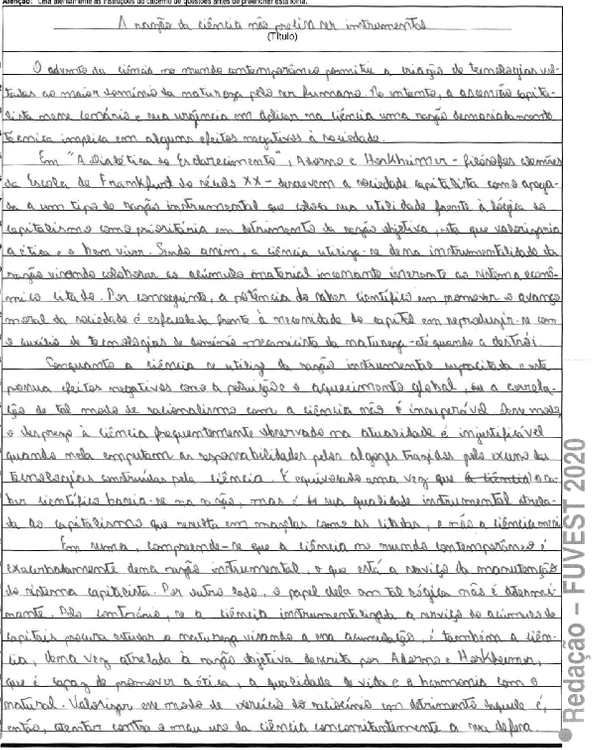 Atenção: Leia atentamente as instruções do caderno de questões antes de preencher esta folha.
A razão da ciência não precisa ser instrumental
(Título)
O advento da ciência no mundo contemporâneo permitiu a criação de tecnologias vol-
tadas ao maior domínio da natureza pelo ser humano. No entanto, a ascensão capita-
lista nesse cenário e sua urgência em aplicar na ciência uma razão demasiadamente
técnica implica em alguns efeitos negativos à sociedade.
Em "A Dialética do Esclarecimento", Adorno e Horkheimer - filósofos alemães
da Escola de Frankfurt do século XX - descrevem a sociedade capitalista como apega-
da a um tipo de razão instrumental que coloca sua utilidade frente à lógica do
capitalismo como prioritária em detrimento da razão objetiva, esta que valorizaria
a ética e o bem viver. Sendo assim, a ciência utiliza-se dessa instrumentalidade da
razão visando colaborar ao acúmulo material incessante inerente ao sistema econô-
mico citado. Por conseguinte, a potência do saber científico em promover o avanço
moral da sociedade é esfacelada frente à necessidade do capital em reproduzir-se com
o auxílio de tecnologias de domínio mecanicista da natureza - até quando a destrói.
Conquanto a ciência se utilize da razão instrumental supracitada e esta
possua efeitos negativos como a poluição e o aquecimento global, a correla-
ção de tal modo de racionalismo com a ciência não é insuperável. Desse modo,
o desprezo à ciência frequentemente observado na atualidade é injustificável
quando nela empregam as responsabilidades pelos algozes trazidos pelo excesso das
tecnologias construídas pela ciência. É equivocado uma vez que o sa-
ber científico baseia-se na razão, mas é sua qualidade instrumental atrela-
da ao capitalismo que resulta em mazelas como as citadas, e não a ciência em si
Em suma, compreende-se que a ciência no mundo contemporâneo é
exacerbadamente dessa razão instrumental, o que está a serviço da manutenção
do sistema capitalista. Por outro lado, o papel dela em tal lógica não é determi-
nante. Pelo contrário, se a ciência instrumentalizada a serviço do acúmulo de
capitais procura estudar a natureza visando a essa acumulação, é também a ciên-
cia, uma vez atrelada à razão objetiva descrita por Adorno e Horkheimer,
que é capaz de promover a ética, a qualidade de vida e a harmonia com o
natural. Valorizar esse modo de exercício do raciocínio em detrimento daquele é,
então, atentar contra o mau uso da ciência concomitantemente a sua defesa.
Redação - FUVEST 2020